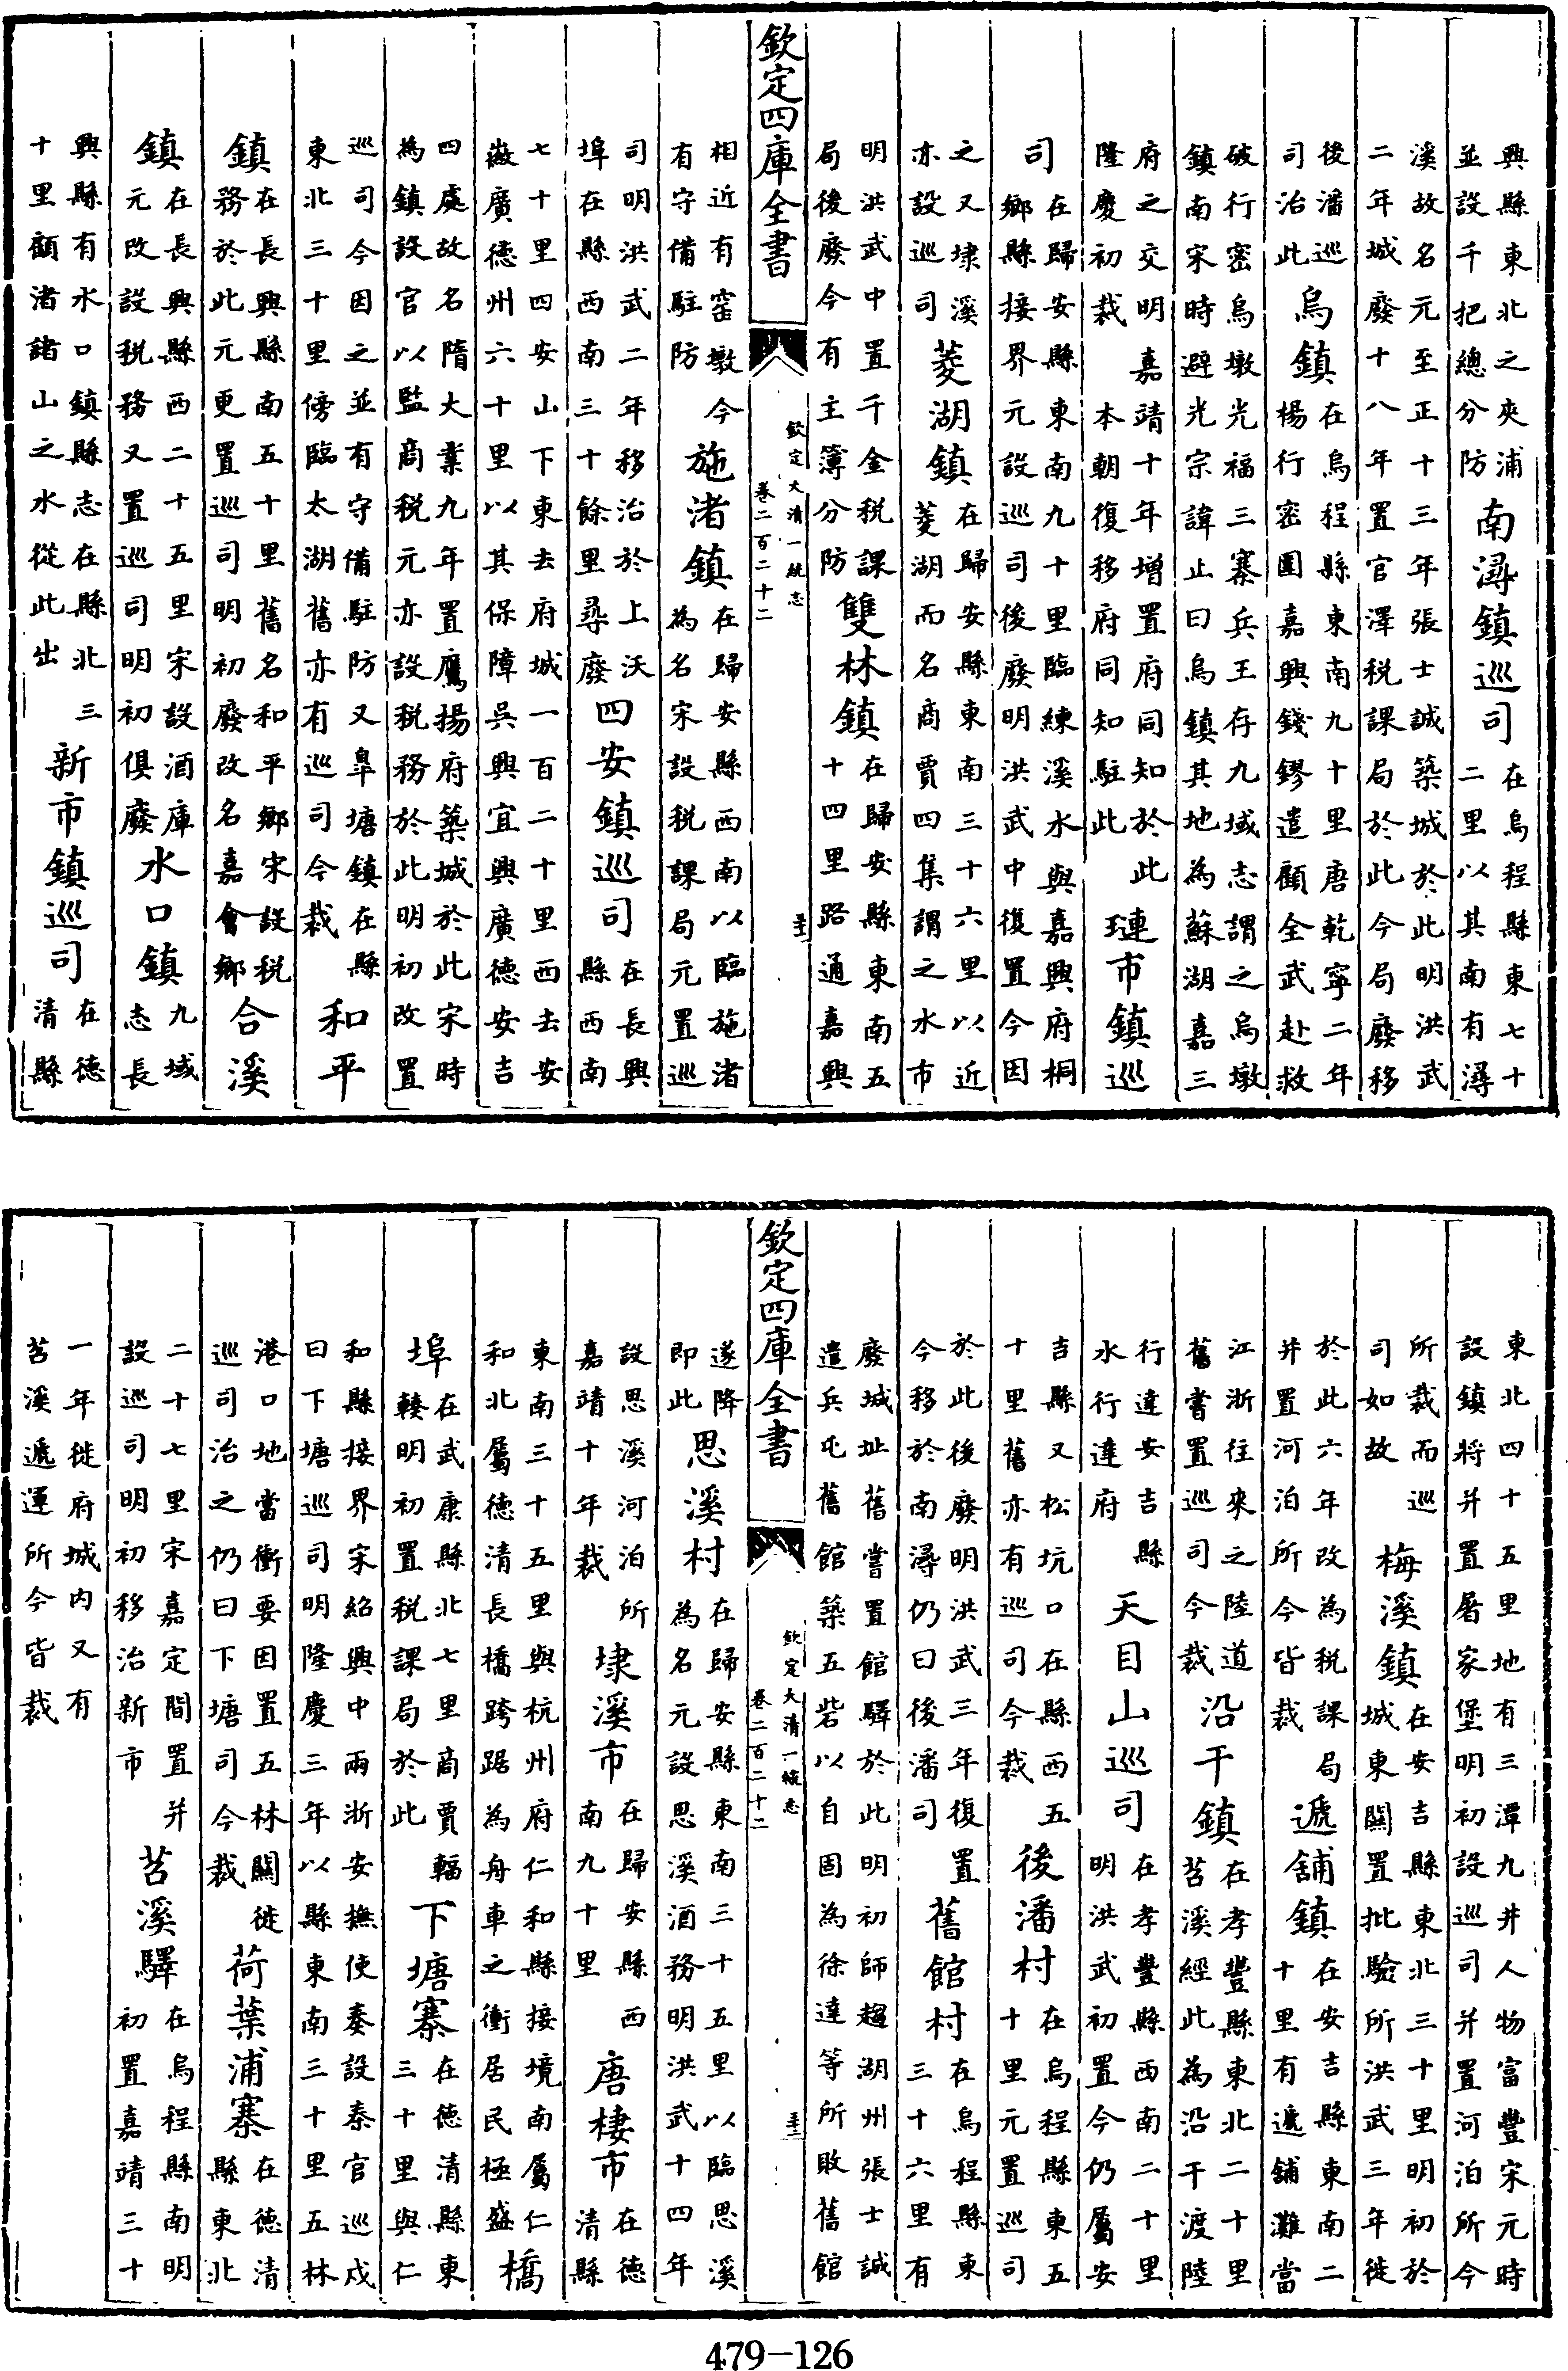 興縣東北之夾浦
並設千把總分防
南潯鎮巡司
在烏程縣東七十
二里以其南有潯
溪故名元至正十三年張士誠築城於此明洪武
二年城廢十八年置官澤税課局於此今局廢移
後潘巡
司治此
烏鎮
在烏程縣東南九十里唐乾寧二年
楊行密圍嘉興錢鏐遣顧全武赴救
破行密烏墩光福三寨兵王存九域志謂之烏墩
鎮南宋時避光宗諱止曰烏鎮其地為蘇湖嘉三
府之交明嘉靖十年增置府同知於此
隆慶初裁本朝復移府同知駐此
璉市鎮巡
司
在歸安縣東南九十里臨練溪水與嘉興府桐
鄉縣接界元設巡司後廢明洪武中復置今因
之又埭溪
亦設巡司
菱湖鎮
在歸安縣東南三十六里以近
菱湖而名商賈四集謂之水市
明洪武中置千金税課
局後廢今有主簿分防
雙林鎮
在歸安縣東南五
十四里路通嘉興
欽定四庫全書
欽定大清一統志
卷二百二十二
相近有窑墩今
有守備駐防
施渚鎮
在歸安縣西南以臨施渚
為名宋設税課局元置巡
司明洪武二年移治於上沃
埠在縣西南三十餘里尋廢
四安鎮巡司
在長興
縣西南
七十里四安山下東去府城一百二十里西去安
徽廣德州六十里以其保障吳興宜興廣德安吉
四處故名隋大業九年置鷹揚府築城於此宋時
為鎮設官以監商税元亦設税務於此明初改置
巡司今因之並有守備駐防又臯塘鎮在縣
東北三十里傍臨太湖舊亦有巡司今裁
和平
鎮
在長興縣南五十里舊名和平鄉宋設税
務於此元更置巡司明初廢改名嘉會鄉
合溪
鎮
在長興縣西二十五里宋設酒庫
元改設税務又置巡司明初俱廢
水口鎮
九域
志長
興縣有水口鎮縣志在縣北三
十里顧渚諸山之水從此出
新市鎮巡司
在德
清縣
東北四十五里地有三潭九井人物富豐宋元時
設鎮將并置屠家堡明初設巡司并置河泊所今
所裁而巡
司如故
梅溪鎮
在安吉縣東北三十里明初於
城東關置批驗所洪武三年徙
於此六年改為税課局
并置河泊所今皆裁
遞舖鎮
在安吉縣東南二
十里有遞舖灘當
江浙往來之陸道
舊嘗置巡司今裁
沿干鎮
在孝豐縣東北二十里
苕溪經此為沿干渡陸
行達安吉縣
水行達府
天目山巡司
在孝豐縣西南二十里
明洪武初置今仍屬安
吉縣又松坑口在縣西五
十里舊亦有巡司今裁
後潘村
在烏程縣東五
十里元置巡司
於此後廢明洪武三年復置
今移於南潯仍曰後潘司
舊館村
在烏程縣東
三十六里有
廢城址舊嘗置館驛於此明初師趨湖州張士誠
遣兵屯舊館築五砦以自固為徐達等所敗舊館
欽定四庫全書
欽定大清一統志
卷二百二十二
遂降
即此
思溪村
在歸安縣東南三十五里以臨思溪
為名元設思溪酒務明洪武十四年
設思溪河泊所
嘉靖十年裁
埭溪市
在歸安縣西
南九十里
唐棲市
在德
清縣
東南三十五里與杭州府仁和縣接境南屬仁
和北屬德清長橋跨踞為舟車之衝居民極盛
橋
埠
在武康縣北七里商賈輻
輳明初置税課局於此
下塘寨
在德清縣東
三十里與仁
和縣接界宋紹興中兩浙安撫使奏設秦官巡戍
曰下塘巡司明隆慶三年以縣東南三十里五林
港口地當衝要因置五林關徙
巡司治之仍曰下塘司今裁
荷葉浦寨
在德清
縣東北
二十七里宋嘉定間置并
設巡司明初移治新市
苕溪驛
在烏程縣南明
初置嘉靖三十
一年徙府城内又有
苕溪遞運所今皆裁
479-126